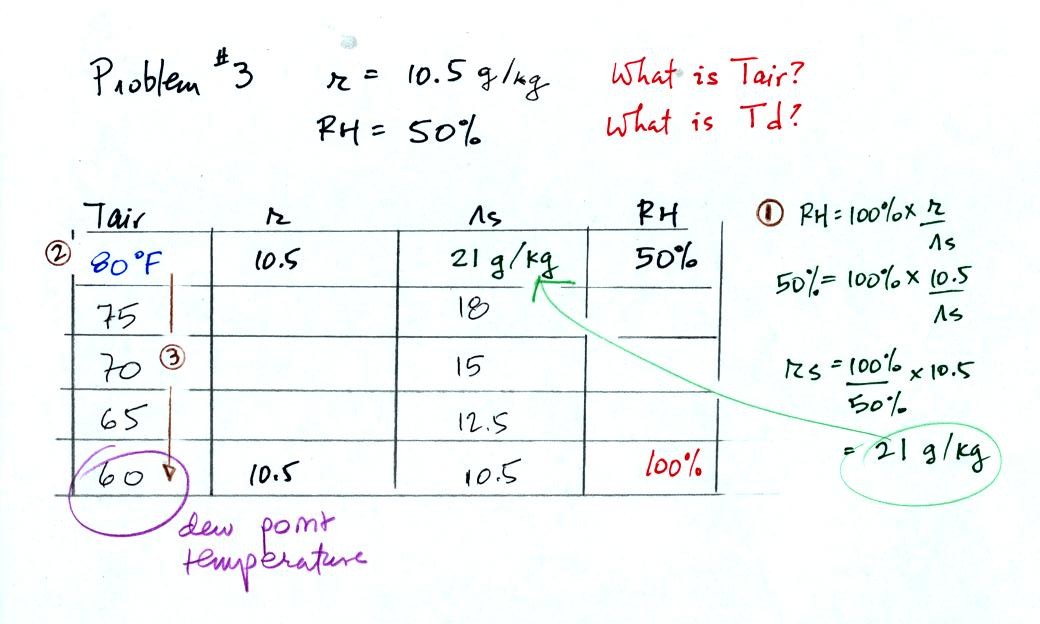 Problem #3 r = 10.5 g/kg What is Tair?
RH = 50% What is Td?
Tair r rs RH
② 80°F 10.5 21 g/kg 50%
75 18
70 ③ 15
65 12.5
60 10.5 10.5 100%
dew point
temperature
① RH = 100% x r/rs
50% = 100% x 10.5/rs
rs = 100%/50% x 10.5
= 21 g/kg